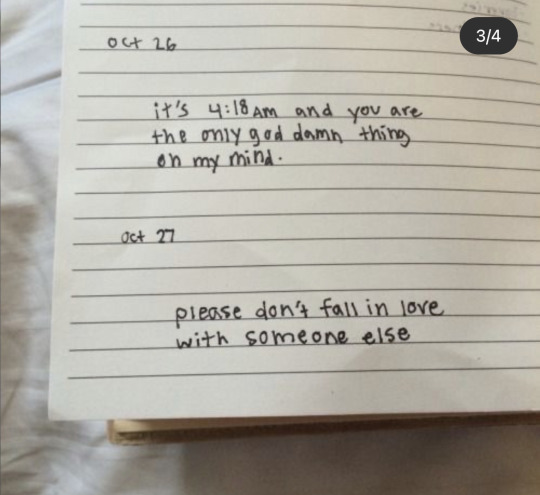 3/4
oct 26
it's 4:18 AM and you are
the only god damn thing
on my mind.
oct 27
please don't fall in love
with someone else